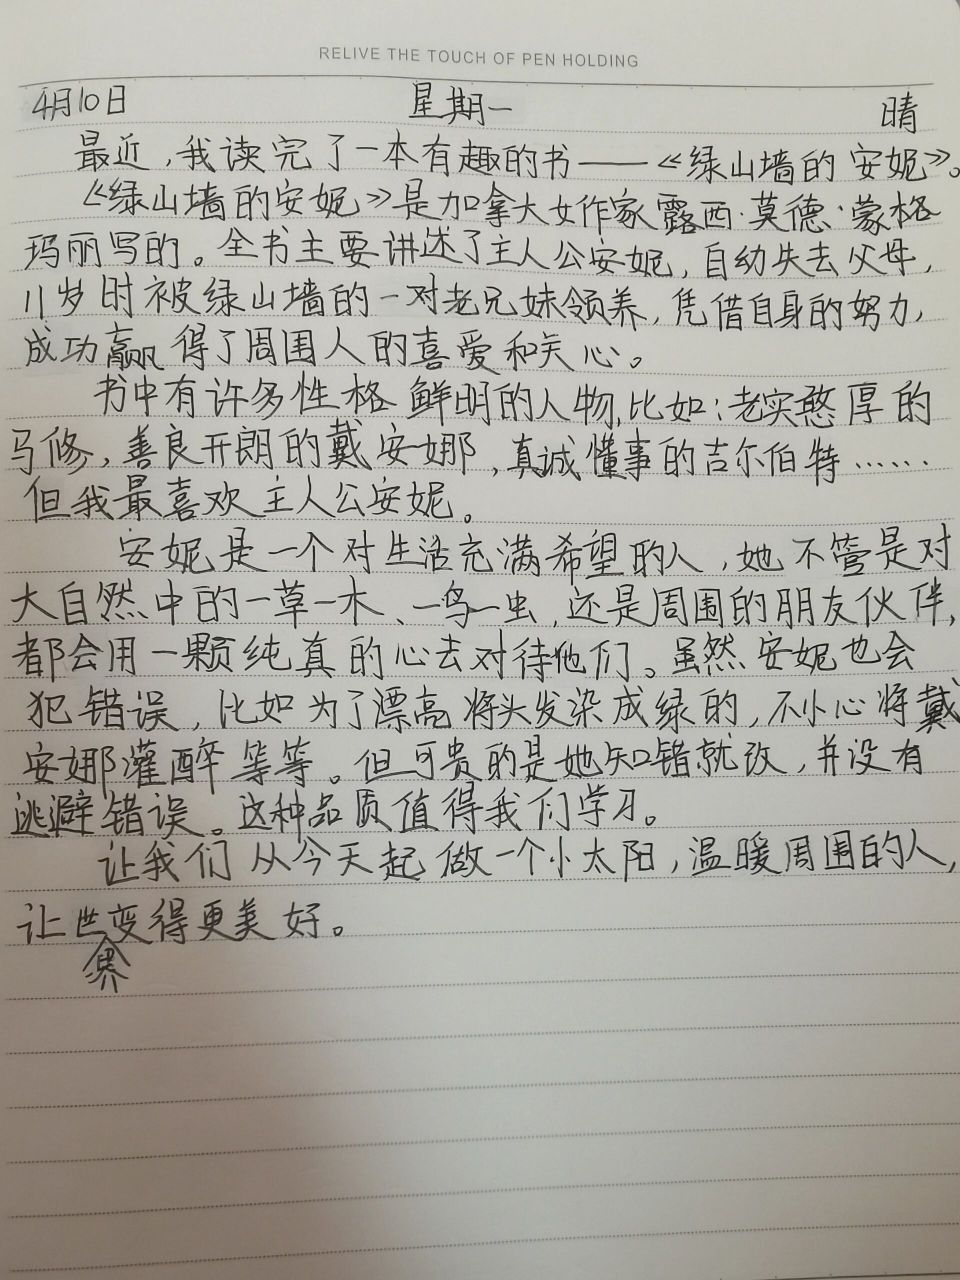 RELIVE THE TOUCH OF PEN HOLDING
4月10日 星期一 晴
最近,我读完了一本有趣的书——《绿山墙的安妮》。
《绿山墙的安妮》是加拿大女作家露西·莫德·蒙格
玛丽写的。全书主要讲述了主人公安妮,自幼失去父母,
11岁时被绿山墙的一对老兄妹领养,凭借自身的努力,
成功赢得了周围人的喜爱和关心。
书中有许多性格鲜明的人物,比如:老实憨厚的
马修,善良开朗的戴安娜,真诚懂事的吉尔伯特……
但我最喜欢主人公安妮。
安妮是一个对生活充满希望的人,她不管是对
大自然中的一草一木、一鸟一虫,还是周围的朋友伙伴,
都会用一颗纯真的心去对待他们。虽然安妮也会
犯错误,比如为了漂亮将头发染成绿的,不小心将戴
安娜灌醉等等。但可贵的是她知错就改,并没有
逃避错误。这种品质值得我们学习。
让我们从今天起做一个小太阳,温暖周围的人,
让世界变得更美好。